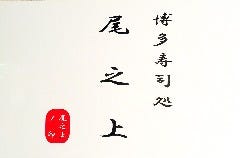 博多寿司処
尾之上
尾之上